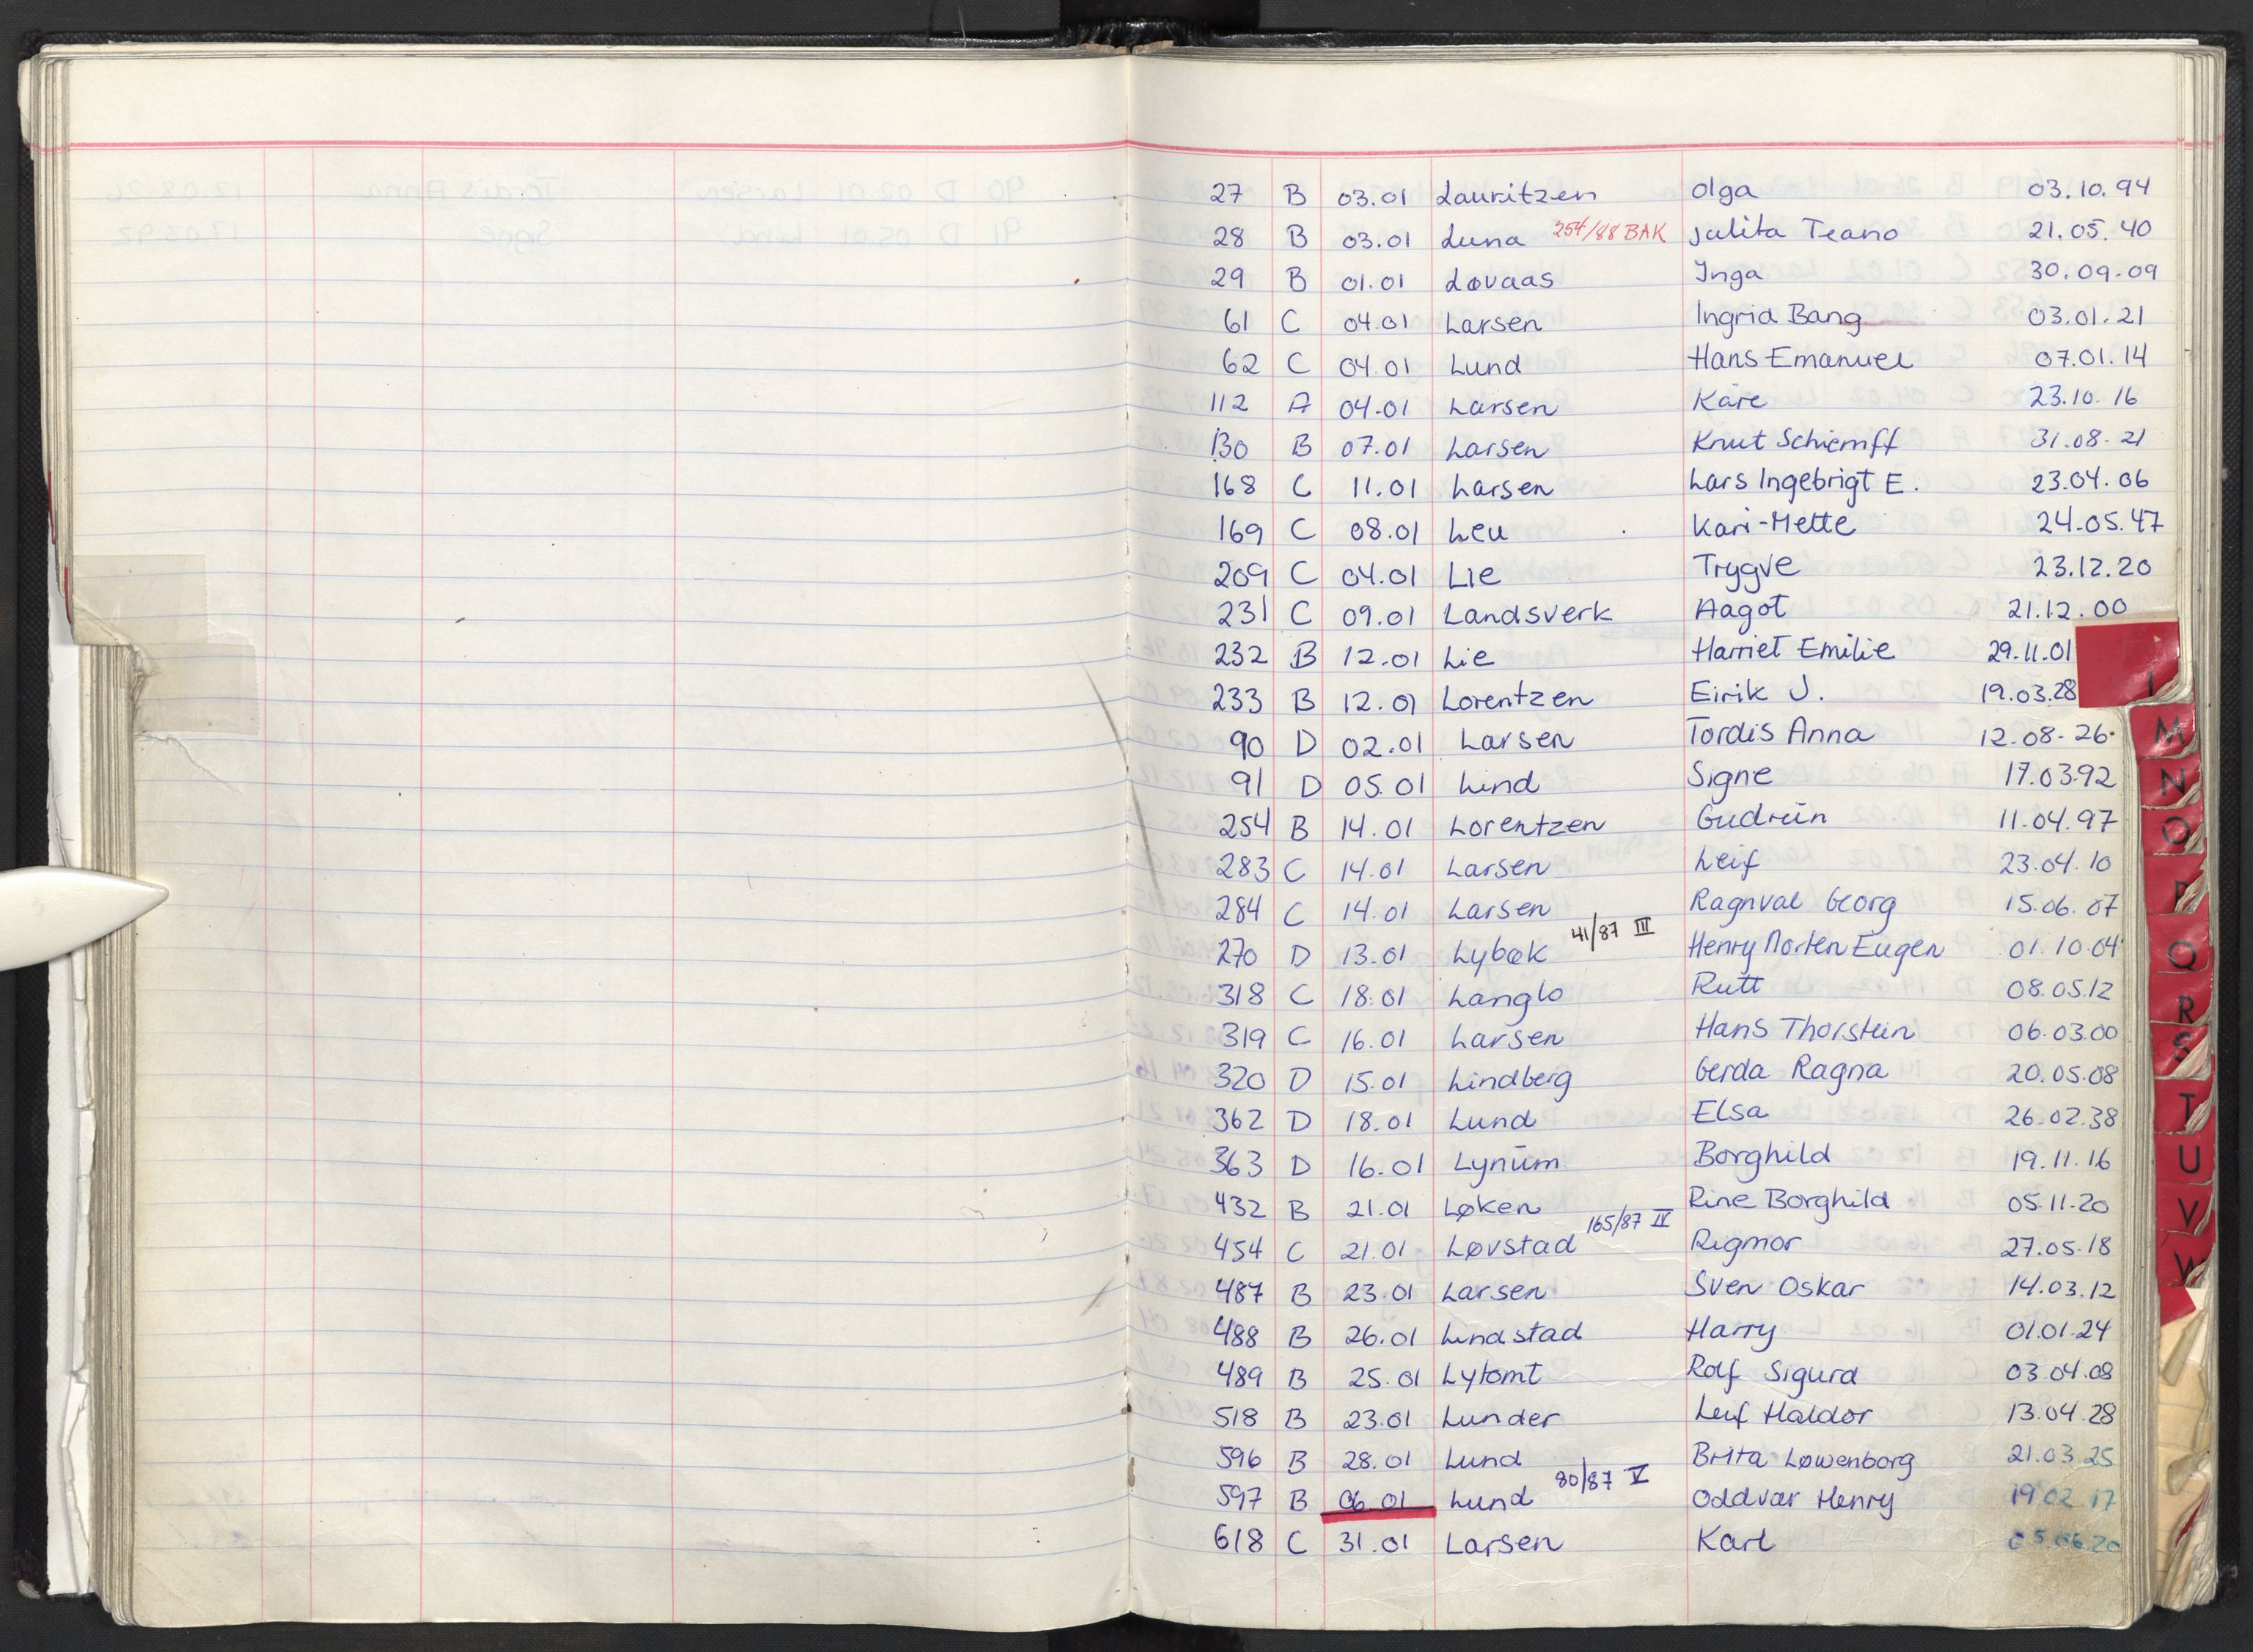 27 B 03.01 Lauritzen Olga 03.10.94
28 B 03.01 Luna 254/88 BAK Julita Teano 21.05.40
29 B 01.01 Løvaas Inga 30.09.09
61 C 04.01 Larsen Ingrid Bang 03.01.21
62 C 04.01 Lund Hans Emanuel 07.01.14
112 A 04.01 Larsen Kåre 23.10.16
130 B 07.01 Larsen Knut 31.08.21
168 C 11.01 Larsen Lars Ingebrigt E. 23.04.06
169 C 08.01 Leu Kari-Mette 24.05.47
209 C 04.01 Lie Trygve 23.12.20
231 C 09.01 Landsverk Aagot 21.12.00
232 B 12.01 Lie Harriet Emilie 29.11.01
233 B 12.01 Lorentzen Eirik J. 19.03.28
90 D 02.01 Larsen Tordis Anna 12.08.26
M
91 D 05.01 Lind Signe 17.03.92
N
254 B 14.01 Lorentzen Gudrun 11.04.97
O
283 C 14.01 Larsen Leif 23.04.10
P
284 C 14.01 Larsen Ragnval Georg 15.06.07
41/87 III
270 D 13.01 Lybæk Henry Morten Eugen 01.10.04
Q
318 C 18.01 Langlo Rutt 08.05.12
R
319 C 16.01 Larsen Hans Thorstein 06.03.00
S
320 D 15.01 Lindberg Gerda Ragna 20.05.08
362 D 18.01 Lund Elsa 26.02.38
T
363 D 16.01 Lynum Borghild 19.11.16
U
432 B 21.01 Løken Rine Borghild 05.11.20
V
165/87 IV
454 C 21.01 Løvstad Rigmor 27.05.18
W
487 B 23.01 Larsen Sven Oskar 14.03.12
488 B 26.01 Lindstad Harry 01.01.24
489 B 25.01 Lytomt Rolf Sigurd 03.04.08
518 B 23.01 Lunder Leif Haldor 13.04.28
596 B 28.01 Lund Brita Løwenborg 21.03.25
80/87 V
597 B 06.01 Lund Oddvar Henry 19.02.17
618 C 31.01 Larsen Karl 05.06.20